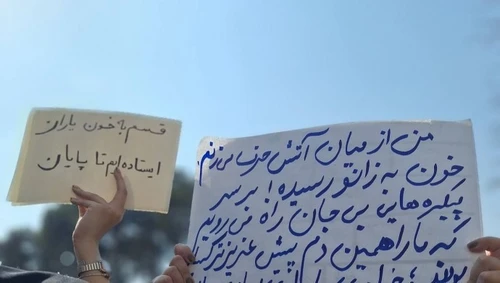 قسم به خون یاران
ایستاده‌ایم تا پایان
من از میان آتش حرف می زنم.
خون به زانو رسیده! بر سر
پیکرهایی بی جان راه می رویم
که تا همین دم پیش عزیزتر
بودند؛